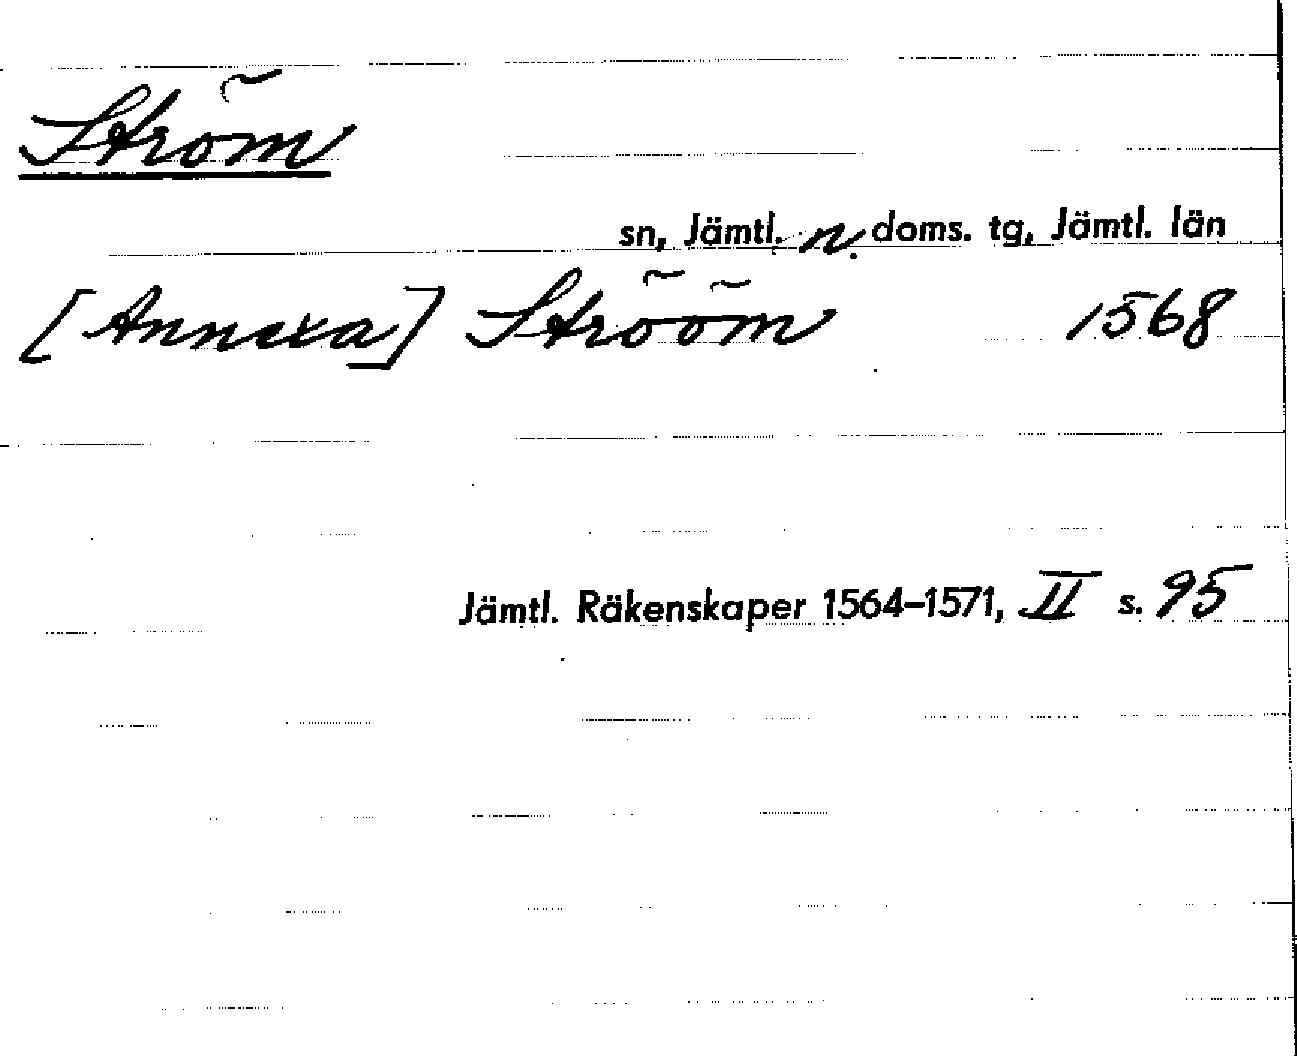 Ström
sn, Jämtl. n. doms. tg, Jämtl. län
[Annexa] Strööm 1568
Jämtl. Räkenskaper 1564–1571, II s. 95